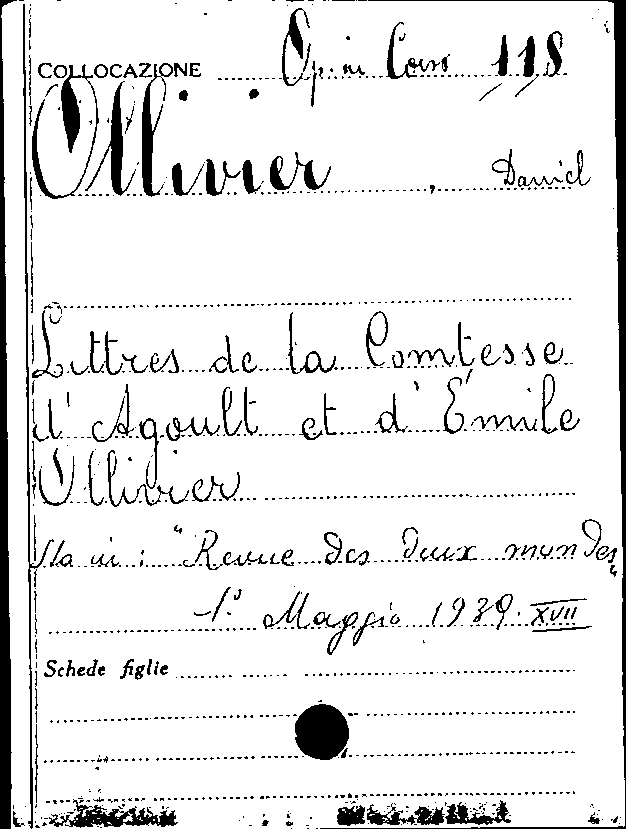 COLLOCAZIONE Op. in Corso 118
Ollivier, Daniel
Lettres de la Comtesse
d'Agoult et d'Émile
Ollivier
Sta in: "Revue des deux mondes"
1° Maggio 1939. XVII
Schede figlie